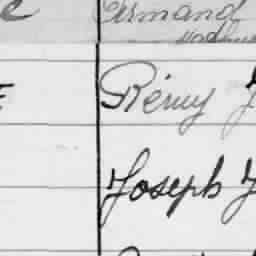 Armand
Rémy J
Joseph J